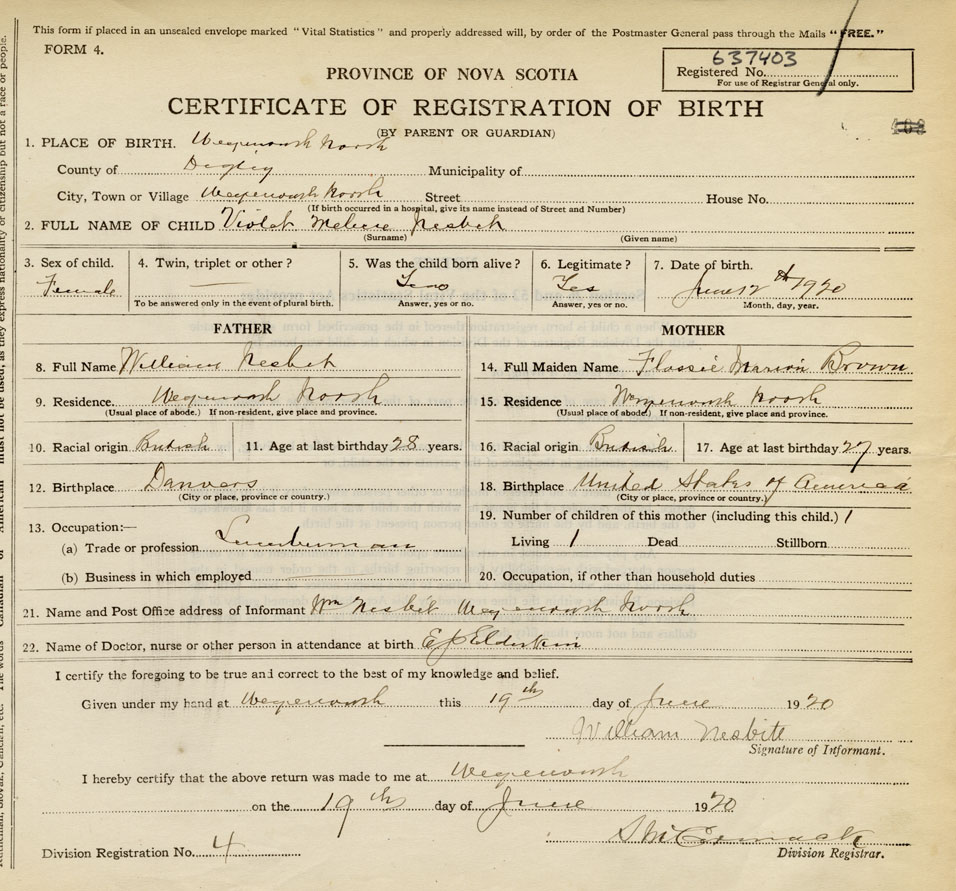 This form if placed in an unsealed envelope marked "Vital Statistics" and properly addressed will, by order of the Postmaster General pass through the Mails "FREE."
FORM 4.
637403
Registered No.
For use of Registrar General only.
PROVINCE OF NOVA SCOTIA
CERTIFICATE OF REGISTRATION OF BIRTH
(BY PARENT OR GUARDIAN)
1. PLACE OF BIRTH. North
County of Digby Municipality of
City, Town or Village North Street House No.
(If birth occurred in a hospital, give its name instead of Street and Number)
2. FULL NAME OF CHILD Violet Nesbit
(Surname) (Given name)
3. Sex of child. 4. Twin, triplet or other? 5. Was the child born alive? 6. Legitimate? 7. Date of birth.
Female — Yes Yes June 12th 1920
To be answered only in the event of plural birth. Answer, yes or no. Answer, yes or no. Month, day, year.
FATHER MOTHER
8. Full Name William Nesbit 14. Full Maiden Name Flossie Marion Brown
9. Residence. North 15. Residence North
(Usual place of abode.) If non-resident, give place and province. (Usual place of abode.) If non-resident, give place and province.
10. Racial origin British 11. Age at last birthday 28 years. 16. Racial origin British 17. Age at last birthday 27 years.
12. Birthplace Danvers 18. Birthplace United States of America
(City or place, province or country.) (City or place, province or country.)
13. Occupation:— 19. Number of children of this mother (including this child.) 1
(a) Trade or profession Lumberman Living 1 Dead Stillborn
(b) Business in which employed 20. Occupation, if other than household duties
21. Name and Post Office address of Informant Wm Nesbit North
22. Name of Doctor, nurse or other person in attendance at birth Elderkin
I certify the foregoing to be true and correct to the best of my knowledge and belief.
Given under my hand at this 19th day of June 1920
William Nesbite
Signature of Informant.
I hereby certify that the above return was made to me at
on the 19th day of June 1920
Division Registration No. 4 Division Registrar.